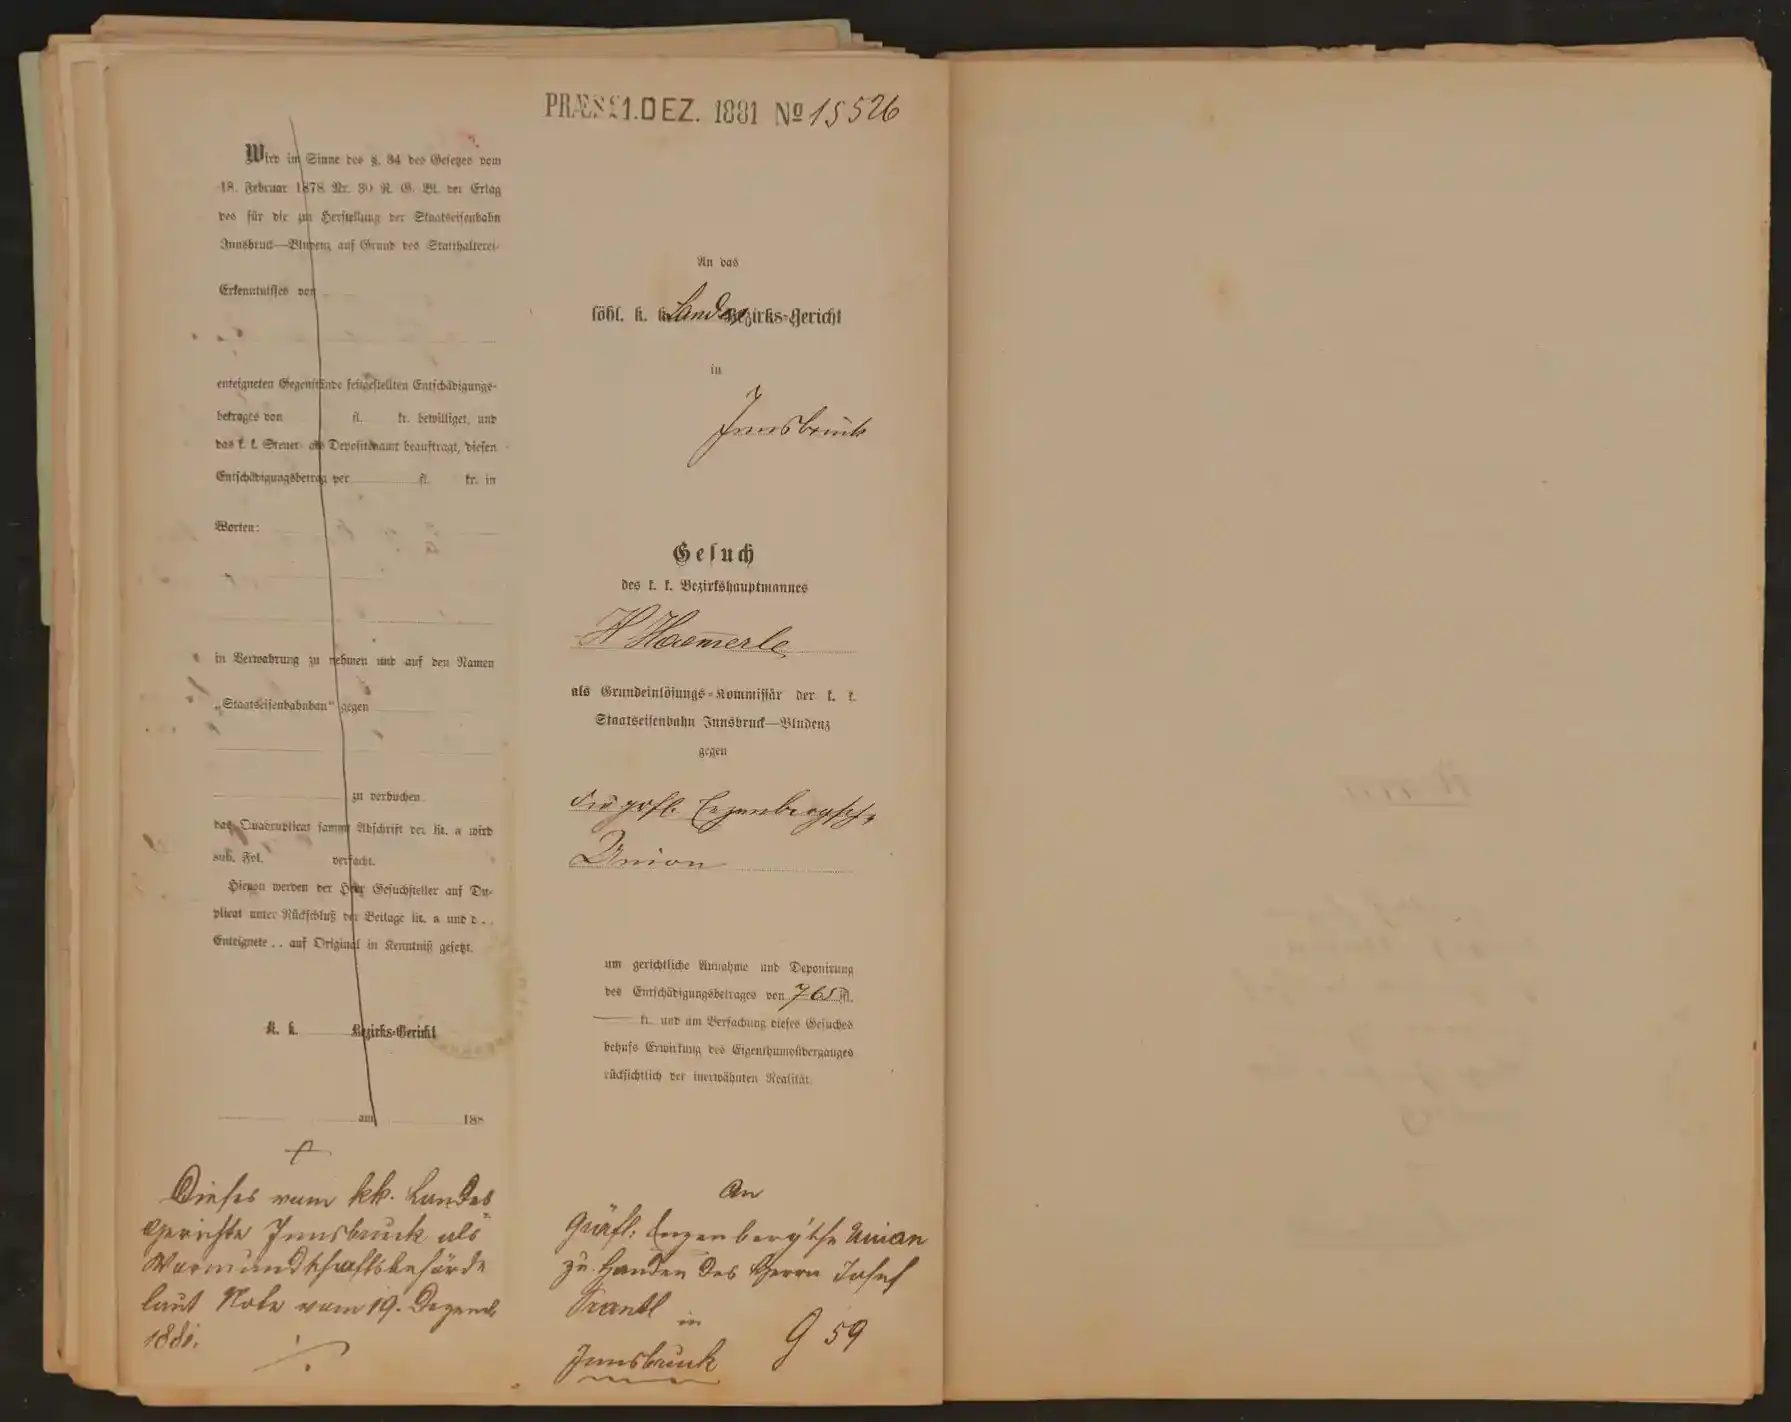 PRÆS 21. DEZ. 1881 Nº 15526
Wird im Sinne des §. 34 des Gesetzes vom
18. Februar 1878 Nr. 30 R. G. Bl. der Erlag
des für die zur Herstellung der Staatseisenbahn
Innsbruck—Bludenz auf Grund des Statthalterei-
Erkenntnisses vom
enteigneten Gegenstände festgestellten Entschädigungs-
betrages von fl. kr. bewilliget, und
das k. k. Steuer- als Depositenamt beauftragt, diesen
Entschädigungsbetrag per fl. kr. in
Worten:
in Verwahrung zu nehmen und auf den Namen
„Staatseisenbahnbau“ gegen
zu verbuchen
das Quadruplicat sammt Abschrift der lit. a wird
sub. Fol. verfacht.
Hievon werden der Herr Gesuchsteller auf Du-
plicat unter Rückschluß der Beilage lit. a und d . .
Enteignete . . auf Original in Kenntniß gesetzt.
K. k. Bezirks-Gericht
am 188
Dieses vom kk. Landes
gerichte Innsbruck als
Vormundschaftsbehörde
laut Note vom 19. Dezemb.
1881.
An das
löbl. k. k. Landes Bezirks-Gericht
in
Innsbruck
Gesuch
des k. k. Bezirkshauptmannes
H Haemerle
als Grundeinlösungs-Kommissär der k. k.
Staatseisenbahn Innsbruck—Bludenz
gegen
die gräfl. Enzenbergsche
Union
um gerichtliche Annahme und Deponirung
des Entschädigungsbetrages von 765 fl.
— kr. und um Verfachung dieses Gesuches
behufs Erwirkung des Eigenthumsüberganges
rücksichtlich der inerwähnten Realität.
An
Gräfl. Enzenberg'sche Union
zu Handen des Herrn Josef
Prantl
in
Innsbruck
G 59